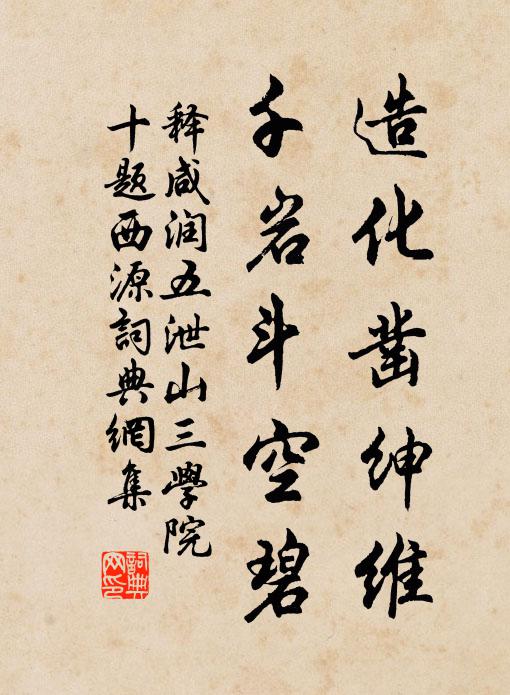 造化凿绅维
千岩斗空碧
释咸润五泄山三學院
十题西源詞典網集
詞典网印